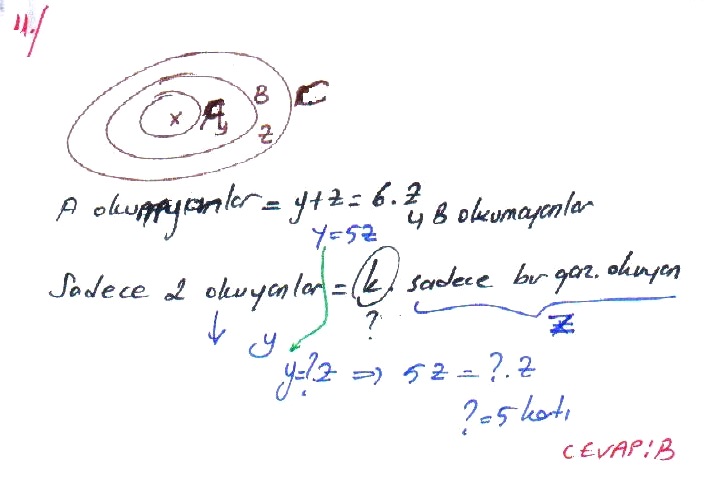 11.)
x A y B z C
A okumayanlar = y+z = 6.z
↳ B okumayanlar
y=5z
Sadece 2 okuyanlar = k. sadece bir gaz. okuyan
? z
y
y=?z ⇒ 5z = ?.z
?=5 katı
CEVAP:B